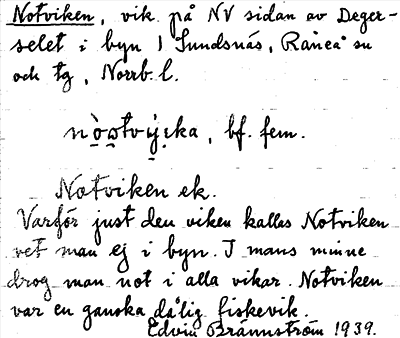 Notviken, vik på NV sidan av Deger-
selet i byn 1 Sundsnäs, Råneå sn
och tg, Norrb. l.
bf. fem.
Notviken ek.
Varför just den viken kallas Notviken
vet man ej i byn. I mans minne
drog man not i alla vikar. Notviken
var en ganska dålig fiskevik.
Edvin Brännström 1939.